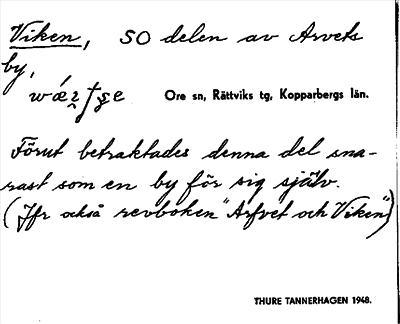 Viken, SO delen av Arvets
by,
Ore sn, Rättviks tg, Kopparbergs län.
Förut betraktades denna del sna-
rast som en by för sig själv.
(Jfr också revboken "Arfvet och Viken")
THURE TANNERHAGEN 1948.